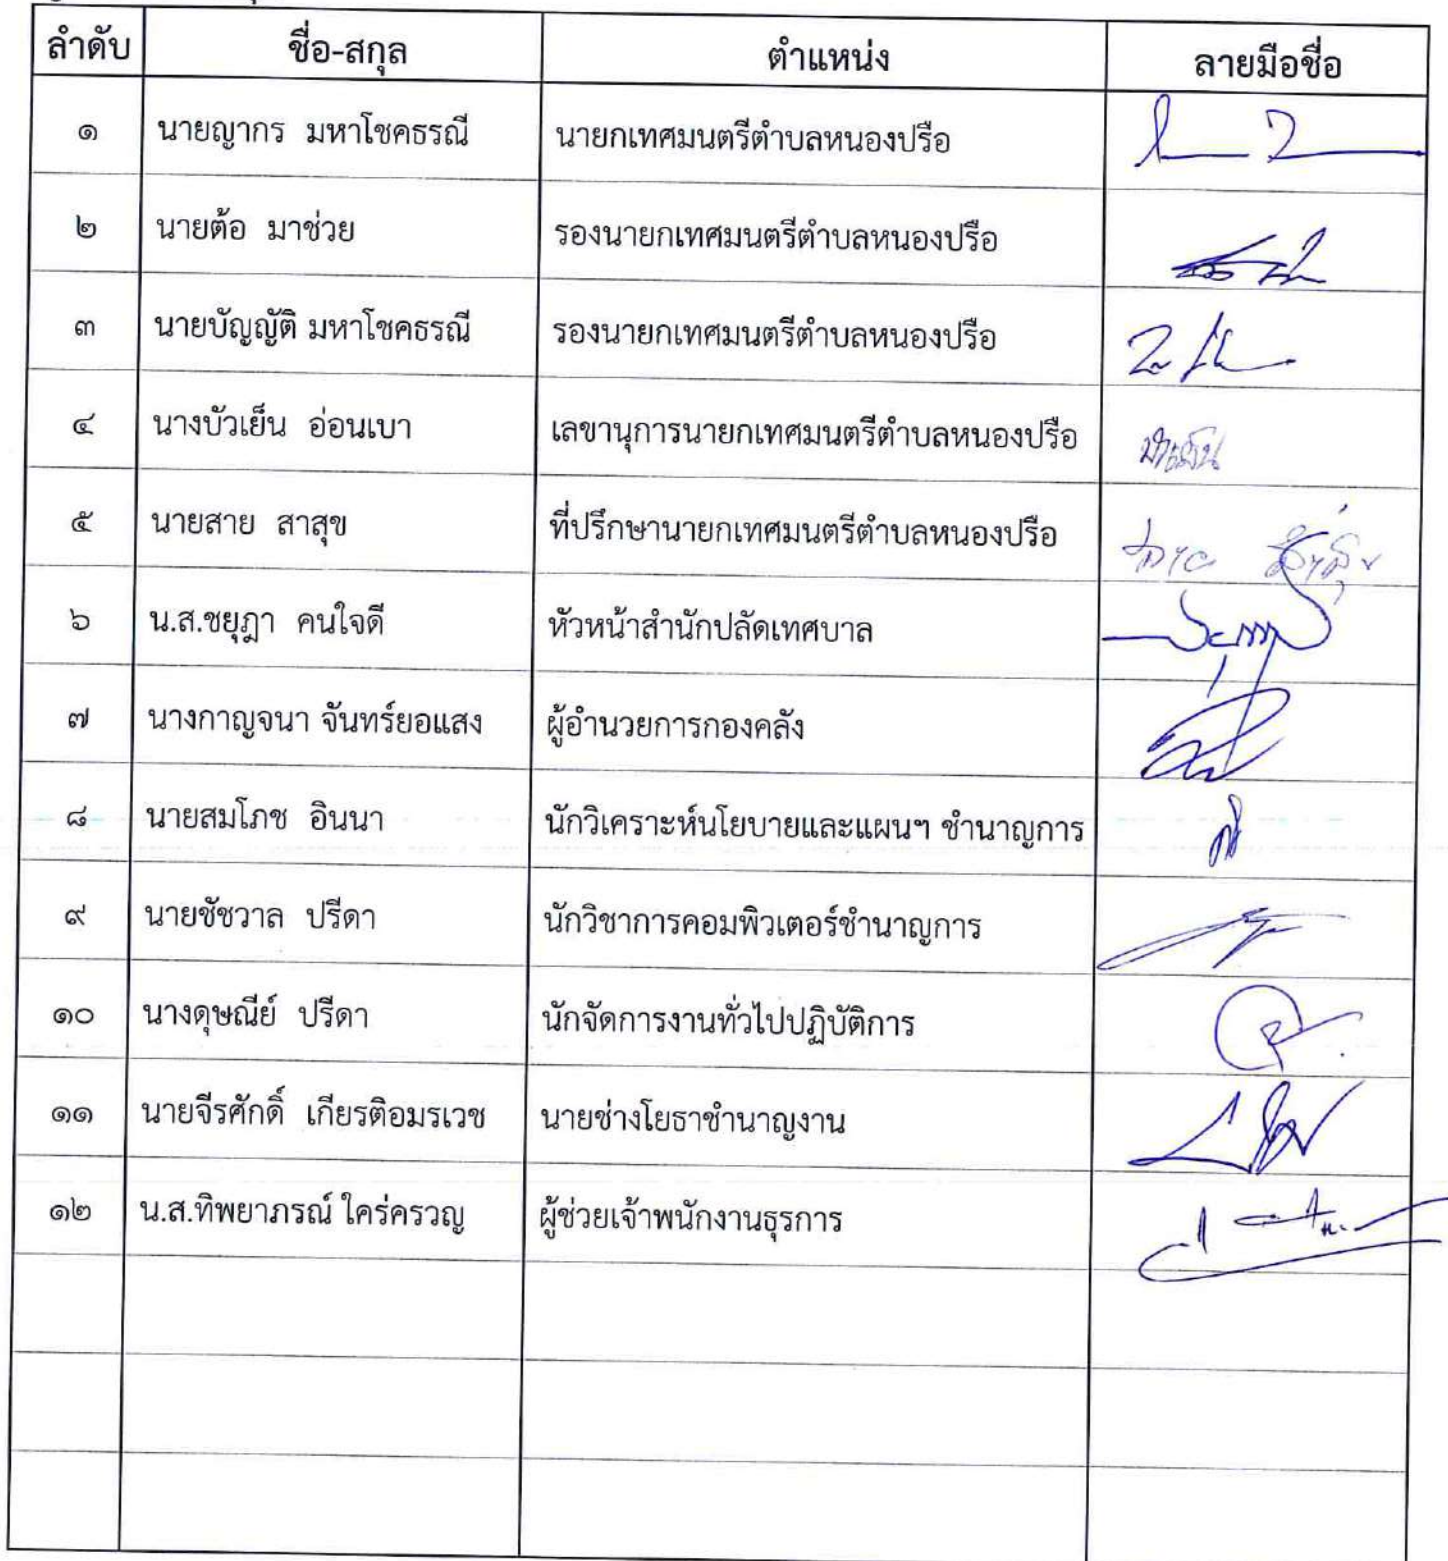 ลำดับ ชื่อ-สกุล ตำแหน่ง ลายมือชื่อ
๑ นายญากร มหาโชคธรณี นายกเทศมนตรีตำบลหนองปรือ
๒ นายต้อ มาช่วย รองนายกเทศมนตรีตำบลหนองปรือ
๓ นายบัญญัติ มหาโชคธรณี รองนายกเทศมนตรีตำบลหนองปรือ
๔ นางบัวเย็น อ่อนเบา เลขานุการนายกเทศมนตรีตำบลหนองปรือ
๕ นายสาย สาสุข ที่ปรึกษานายกเทศมนตรีตำบลหนองปรือ
๖ น.ส.ชยุฎา คนใจดี หัวหน้าสำนักปลัดเทศบาล
๗ นางกาญจนา จันทร์ยอแสง ผู้อำนวยการกองคลัง
๘ นายสมโภช อินนา นักวิเคราะห์นโยบายและแผนฯ ชำนาญการ
๙ นายชัชวาล ปรีดา นักวิชาการคอมพิวเตอร์ชำนาญการ
๑๐ นางดุษณีย์ ปรีดา นักจัดการงานทั่วไปปฏิบัติการ
๑๑ นายจีรศักดิ์ เกียรติอมรเวช นายช่างโยธาชำนาญงาน
๑๒ น.ส.ทิพยาภรณ์ ใคร่ครวญ ผู้ช่วยเจ้าพนักงานธุรการ